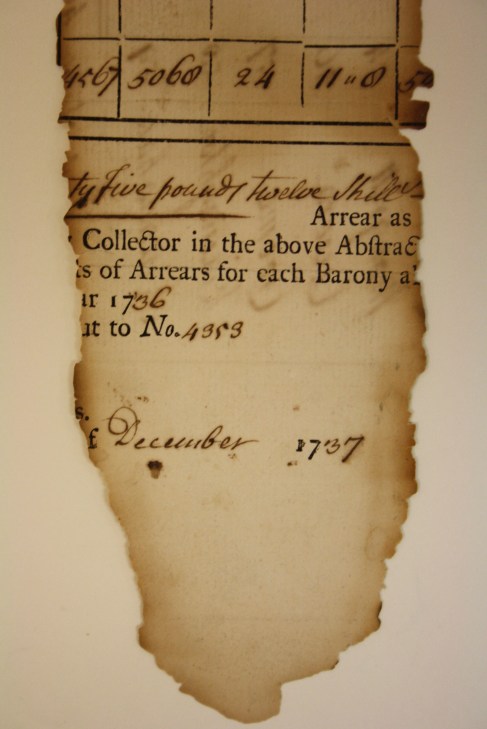 4567 5068 24 11"8 50
ty Five pounds twelve Shill
Arrear as
Collector in the above Abstrac
ts of Arrears for each Barony a
ar 1736
ut to No. 4353
s.
f December 1737